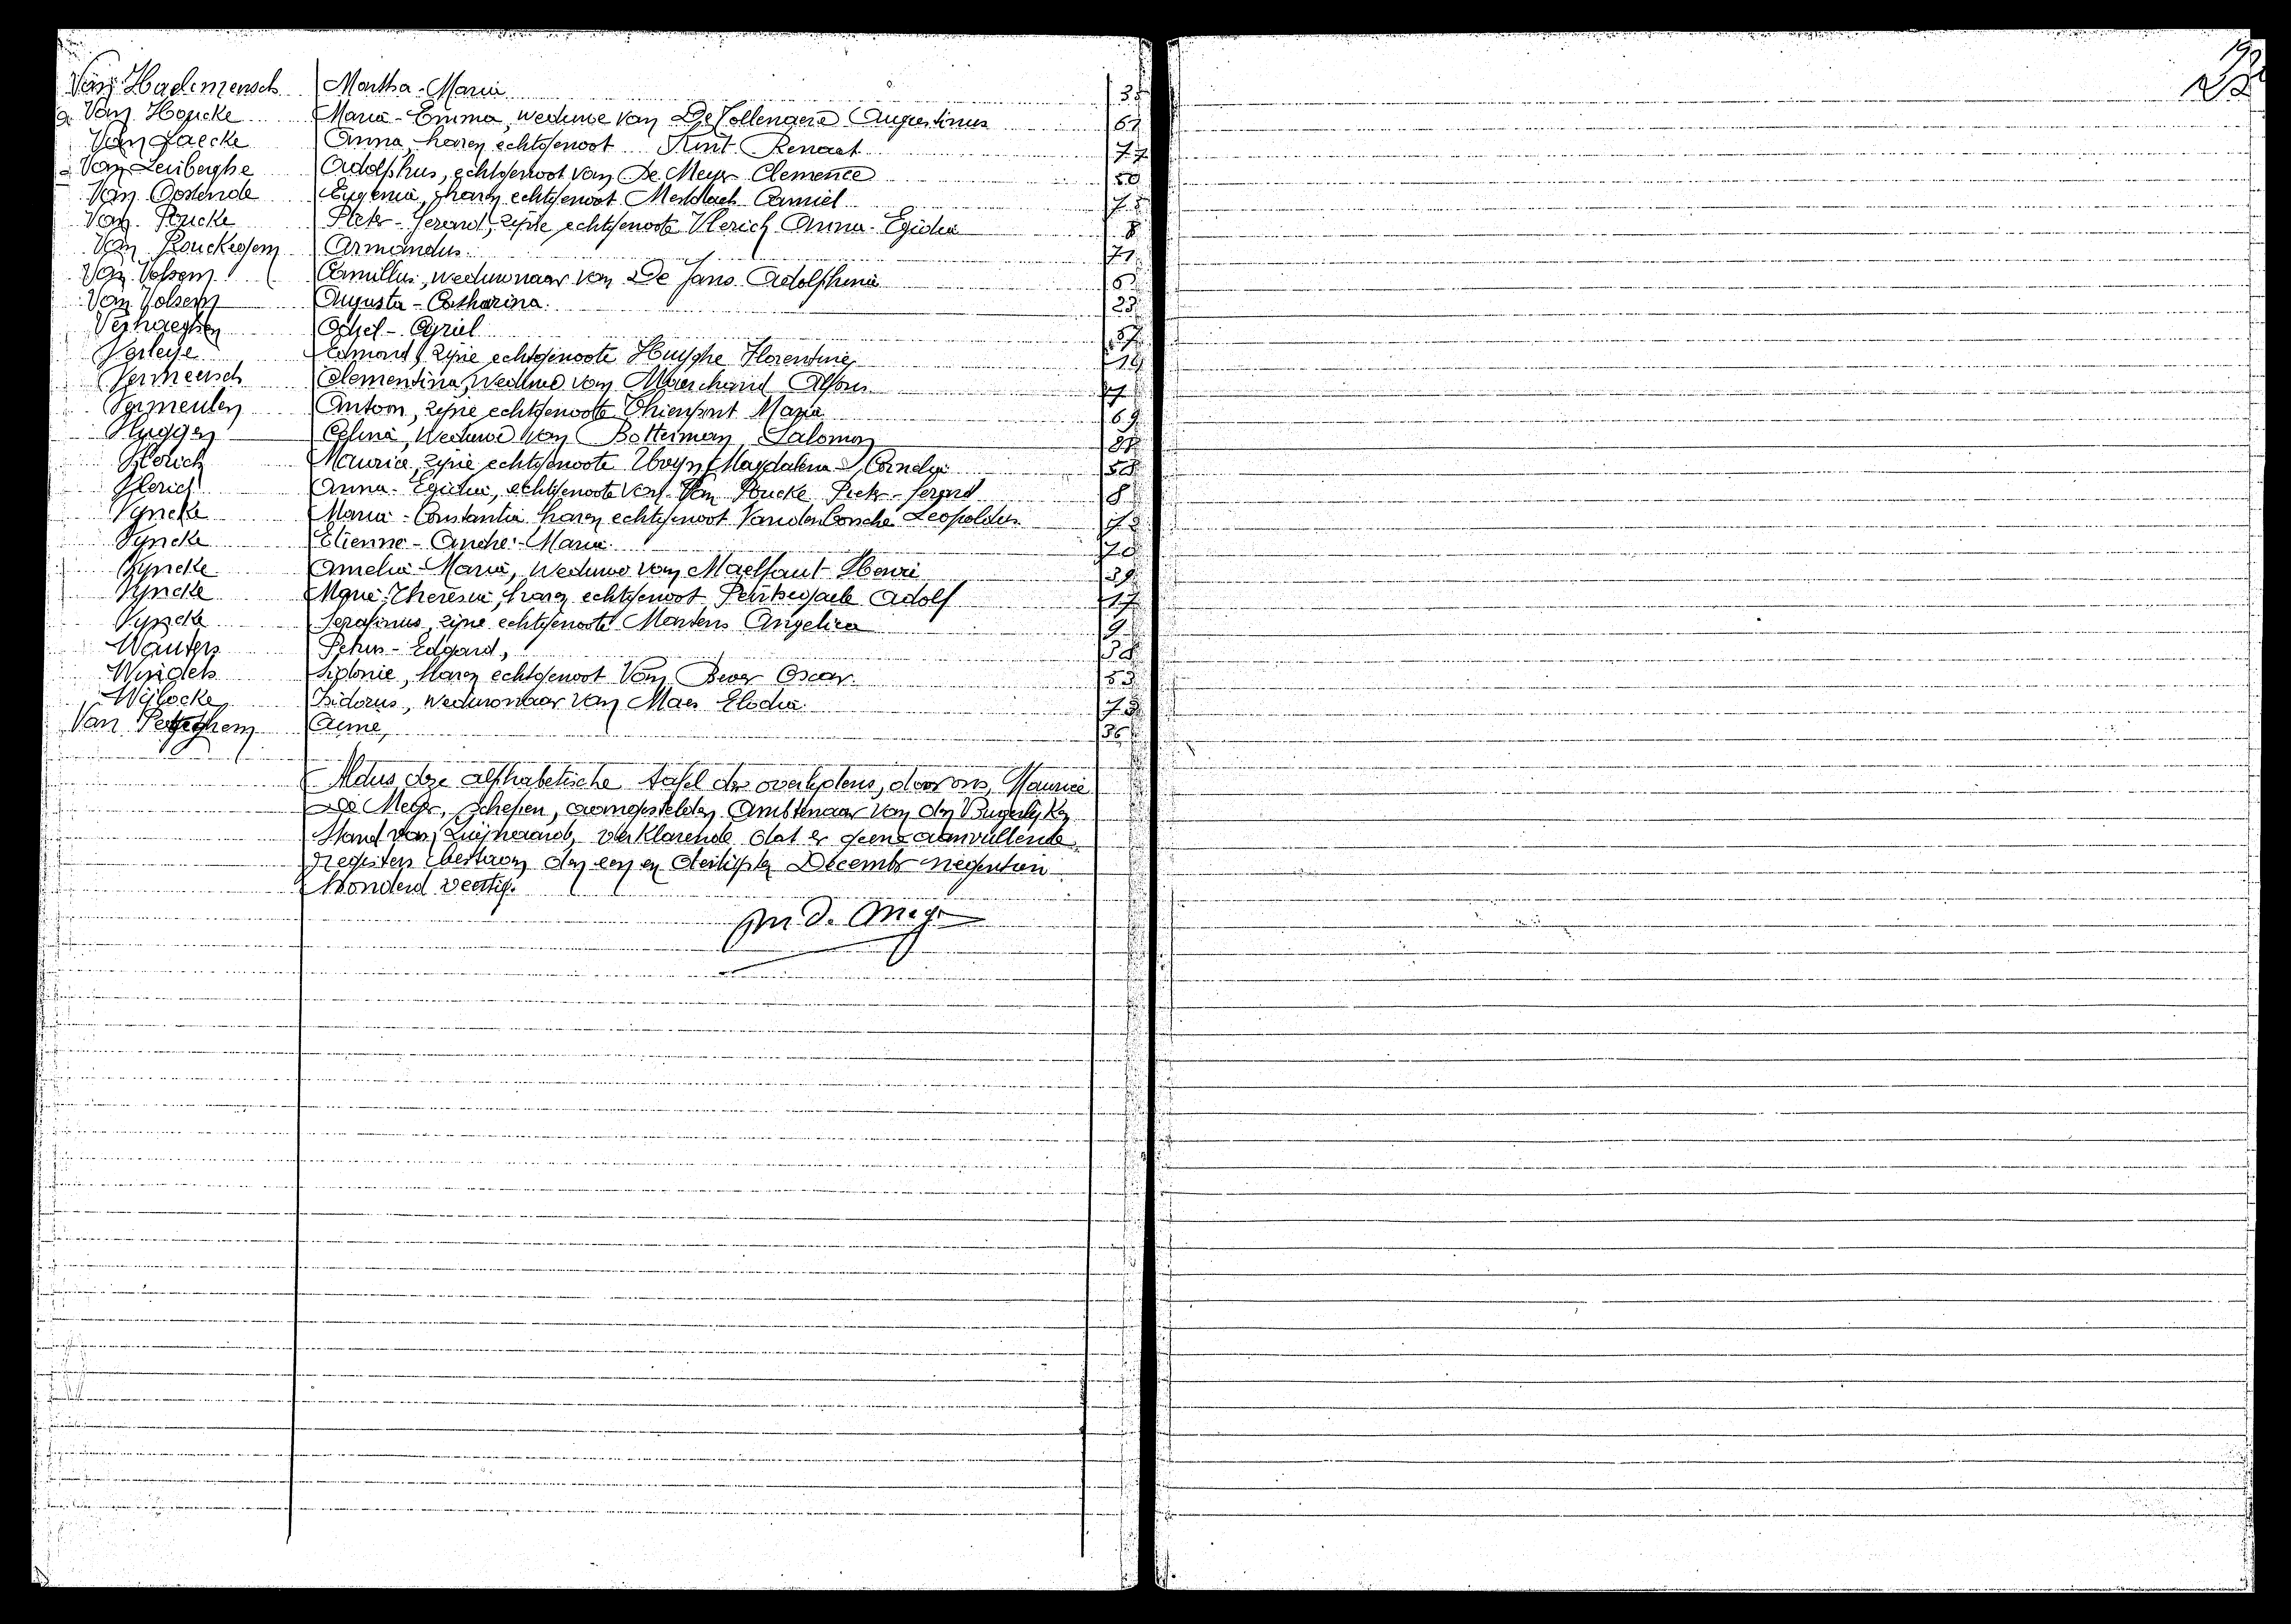 Martha-Maria 35
Van Houcke Maria-Emma, weduwe van De Tollenaere Augustinus 61
Van Laecke Anna, haren echtgenoot Kint Renaat 77
Van Leirberghe Adolphus, echtgenoot van De Meyer Clemence 50
Van Oostende Eugenia, haren echtgenoot Camiel 75
Van Poucke Pieter-Serand, zijne echtgenoote Vlerick Anna-Egidia 8
Van Armandus 71
Van Volsem Camillus, weduwnaar van De Jans Adolphina 6
Van Volsem Augusta-Catharina 23
Verhaeghen Cyriel 57
Verleye Edmond, zijne echtgenoote Huyghe Florentine 19
Vermeersch Clementina, weduwe van Marchand Alfons
Vermeulen Antoon, zijne echtgenoote Thienpont Maria 69
Celina, weduwe van Botterman Salomon
Vlerick Maurice, zijne echtgenoote Magdalena Cornelia 58
Vlerick Anna-Egidia, echtgenoote van Van Poucke Pieter-Serand 8
Vyncke Maria-Constantia haren echtgenoot Vandenbossche Leopoldus
Vyncke Etienne-André-Maria 70
Vyncke Amelia-Maria, weduwe van Maelfaut Henri 39
Vyncke Maria-Theresia, haren echtgenoot Adolf 17
Vyncke Serafinus, zijne echtgenoote Martens Angelica 9
Wauters Petrus-Edgard, 38
Windels Sidonie, haren echtgenoot Van Bever Oscar 53
Wijlocke Isidorus, weduwnaar van Maes Elodia
Van Peteghem Aimé, 36
Aldus deze alphabetische tafel der overlijdens, door ons, Maurice
De Meyer, schepen, aangestelden Ambtenaar van den Burgerlijken
Stand van Zwijnaarde, verklarende dat er geene aanvullende
registers bestaan, den een en dertigsten December negentien
honderd veertig.